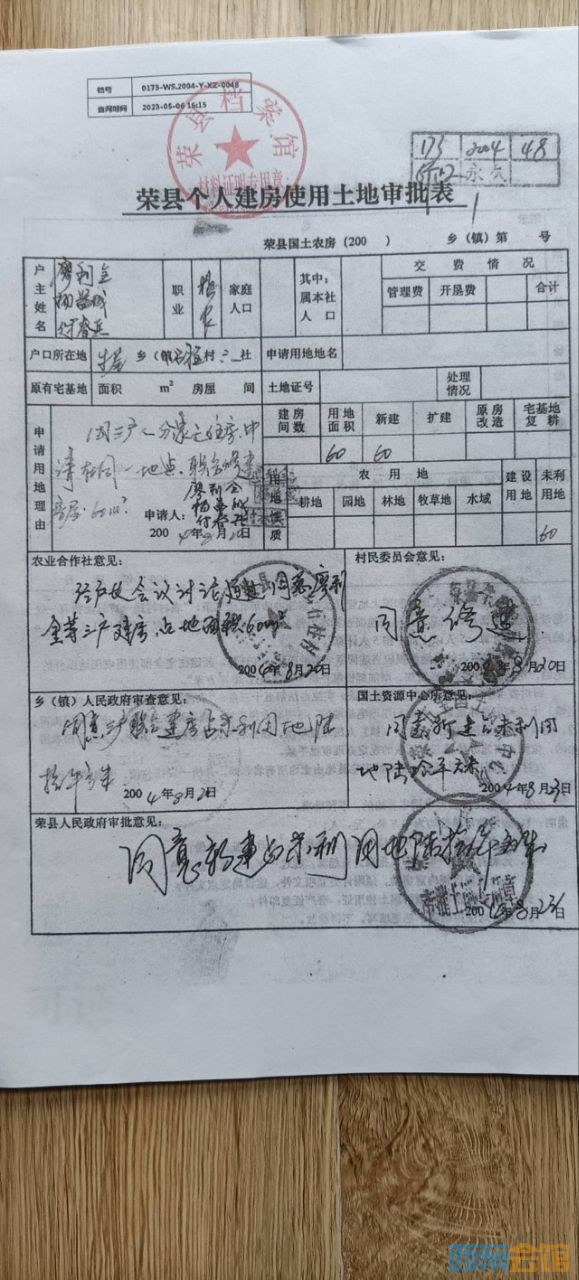 档号 0173-WS.2004-Y-XZ-0048
查阅时间 2023-05-06 16:15
荣县档案馆
材料证明专用章
173 2004 48
永久
荣县个人建房使用土地审批表
荣县国土农房(200 ) 乡(镇)第 号
户主姓名 廖利全
职业
家庭人口
其中:属本社人口
交费情况
管理费 开垦费 合计
户口所在地 乡(镇) 村 社 申请用地地名
原有宅基地 面积 m² 房屋 间 土地证号 处理情况
申请用地理由
因三户人分家无住房.申
请在同一地点.联合修建
住房.60m²
廖利全
申请人:
2004年8月20日
建房间数 用地面积 新建 扩建 原房改造 宅基地复耕
60 60
用地性质
农用地 建设用地 未利用地
耕地 园地 林地 牧草地 水域
60
农业合作社意见:
经户女会议讨论通过同意廖利
全等三户建房占地面积60m²
2004年8月20日
村民委员会意见:
同意修建.
2004年8月20日
乡(镇)人民政府审查意见:
同意三户联合建房占未利用地陆
拾平方米
2004年8月21日
国土资源中心所意见:
同意新建占未利用
地陆拾平方米
2004年8月23日
荣县人民政府审批意见:
同意新建占未利用地陆拾平方米
2004年8月23日
西祠会馆